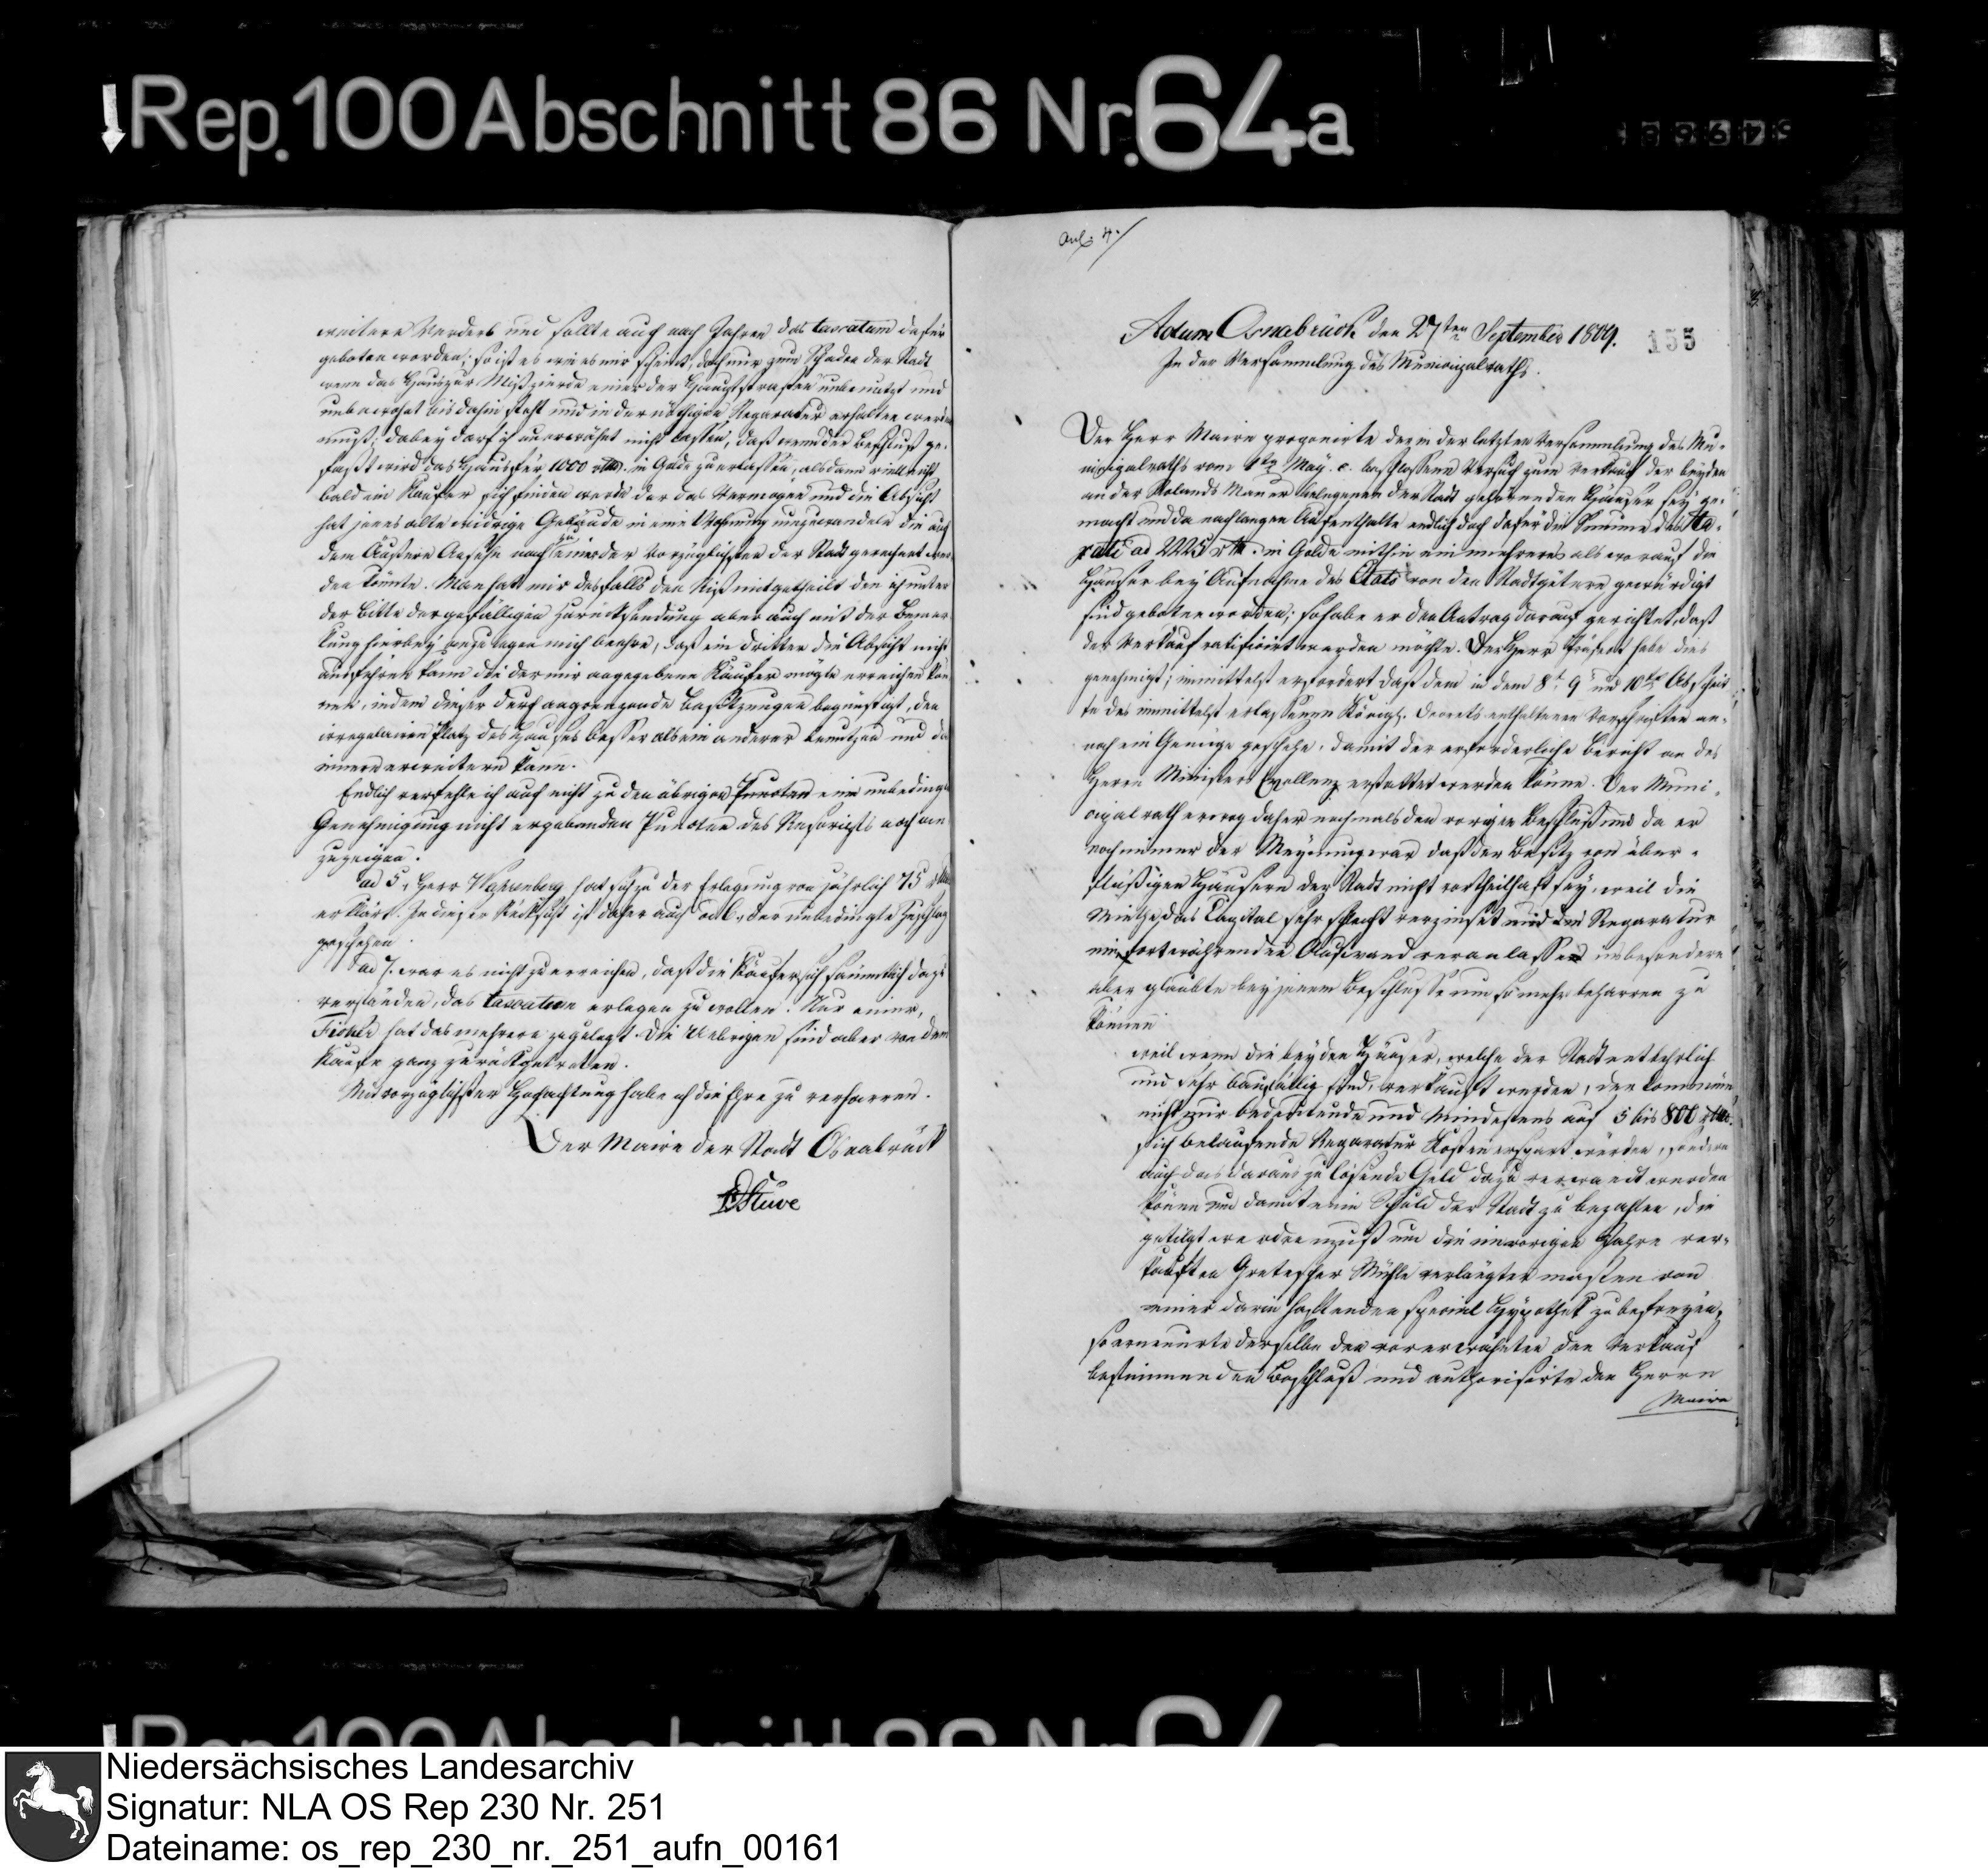 Rep. 100 Abschnitt 86 Nr. 64a
weitern Verderb und sollte auch nach Jahren das taxatum dafür
geboten werden; so ist es wie es mir scheint, doch nur zum Schaden der Stadt
wenn das Haus zur Mißzierde einer der Hauptstraßen unbenutzt und
unbewohnt bis dahin steht und in der nöthigen Reparatur erhalten werden
muß; dabey darf ich unerwähnt nicht lassen, daß wenn der Beschluß ge-
faßt wird das Haus für 1000 rthlr. in Golde zu erlassen, alsdann vielleicht
bald ein Käufer sich finden werde der das Vermögen und die Absicht
hat jenes alte widrige Gebäude in eine Wohnung umzuwandeln die auch
dem Äußern Ansehn nach zu einer der vorzüglichsten der Stadt gerechnet wer-
den könnte. Man hat mir desfalls den Riß mitgetheilt den ich unter
der Bitte der gefälligen Zurücksendung aber auch mit der Bemer-
kung hierbey anzulegen mich beehre, daß ein dritter die Absicht nicht
ausführen kann die der mir angegebene Käufer mögte erreichen kön-
nen, indem dieser durch angrenzende Besitzungen begünstigt, den
irregulairen Platz des Hauses besser als ein anderer benutzen und das
innere erweitern kann.
Endlich verfehle ich auch nicht zu den übrigen Puncten eine unbedingte
Genehmigung nicht ergebenden Puncten des Rescripts noch an-
zuzeigen.
ad 5, Herr Wahrenberg hat sich zu der Erlegung von jährlich 75 rthlr
erklärt. In dieser Rücksicht ist daher auch ad 6, der unbedingte Zuschlag
geschehen.
ad 7. war es nicht zu erreichen, daß die Käufer sich sämmtlich dazu
verständen, das taxatum erlegen zu wollen. Nur einer,
Fischer hat das mehrere zugelegt. Die Uebrigen sind aber von dem
Kaufe ganz zurückgetreten.
Mit vorzüglichster Hochachtung habe ich die Ehre zu verharren.
Der Maire der Stadt Osnabrück
Stüve
Anl: 4.
Actum Osnabrück den 27ten September 1809.
155
In der Versammlung des Municipalraths.
Der Herr Maire proponirte der in der letzten Versammlung des Mu-
nicipalraths vom May. c. beschlossene Versuch zum Verkauf der beyden
an der Rolands Mauer belegenen der Stadt gehörenden Häuser sey ge-
macht und da nach langen Aufenthalte endlich doch dafür die Summe des Ta-
xati ad 2225 rthlr. in Golde mithin ein mehreres als worauf die
Häuser bey Aufnahme des Etats von den Stadtgütern gewürdigt
sind geboten worden; so habe er den Antrag darauf gerichtet, daß
der Verkauf ratificirt werden möchte. Der Herr Präfect habe dies
genehmigt; inmittelst erfordert daß dem in dem 8t 9 und 10ten Abschnit-
te des inmittelst erlassenen Königl. Decrets enthaltenen Vorschriften an-
noch ein Genüge geschehe, damit der erforderliche Bericht an des
Herrn Ministers Excellenz erstattet werden könne. Der Muni-
cipalrath erwog daher nochmals den vorigen Beschluß und da er
noch immer der Meynung war daß der Besitz von über-
flüßigen Häusern der Stadt nicht vortheilhaft sey, weil die
Miethe das Capital sehr schlecht verzinset und die Reparatur
einen fortwährenden Aufwand veranlassen insbesondere
aber glaubte bey jenem Beschlusse um so mehr beharren zu
können
weil wenn die beyden Häuser, welche der Stadt entbehrlich
und sehr baufällig sind, verkauft werden, der Commüne
nicht nur bedeutende und mindestens auf 5 bis 800 rthlr.
sich belaufende Reparatur Kosten erspart würden, sondern
auch das daraus zu lösende Geld dazu verwandt werden
könne um damit eine Schuld der Stadt zu bezahlen, die
getilgt werden muß um die im vorigen Jahre ver-
kauften Gretescher Mühle verlangter maßen von
einer darin haftenden special Hypothek zu befreyen,
so erneuerte derselbe den vorerwähnten den Verkauf
bestimmenden Beschluß und authorisirte den Herrn
Maire
Niedersächsisches Landesarchiv
Signatur: NLA OS Rep 230 Nr. 251
Dateiname: os_rep_230_nr._251_aufn_00161